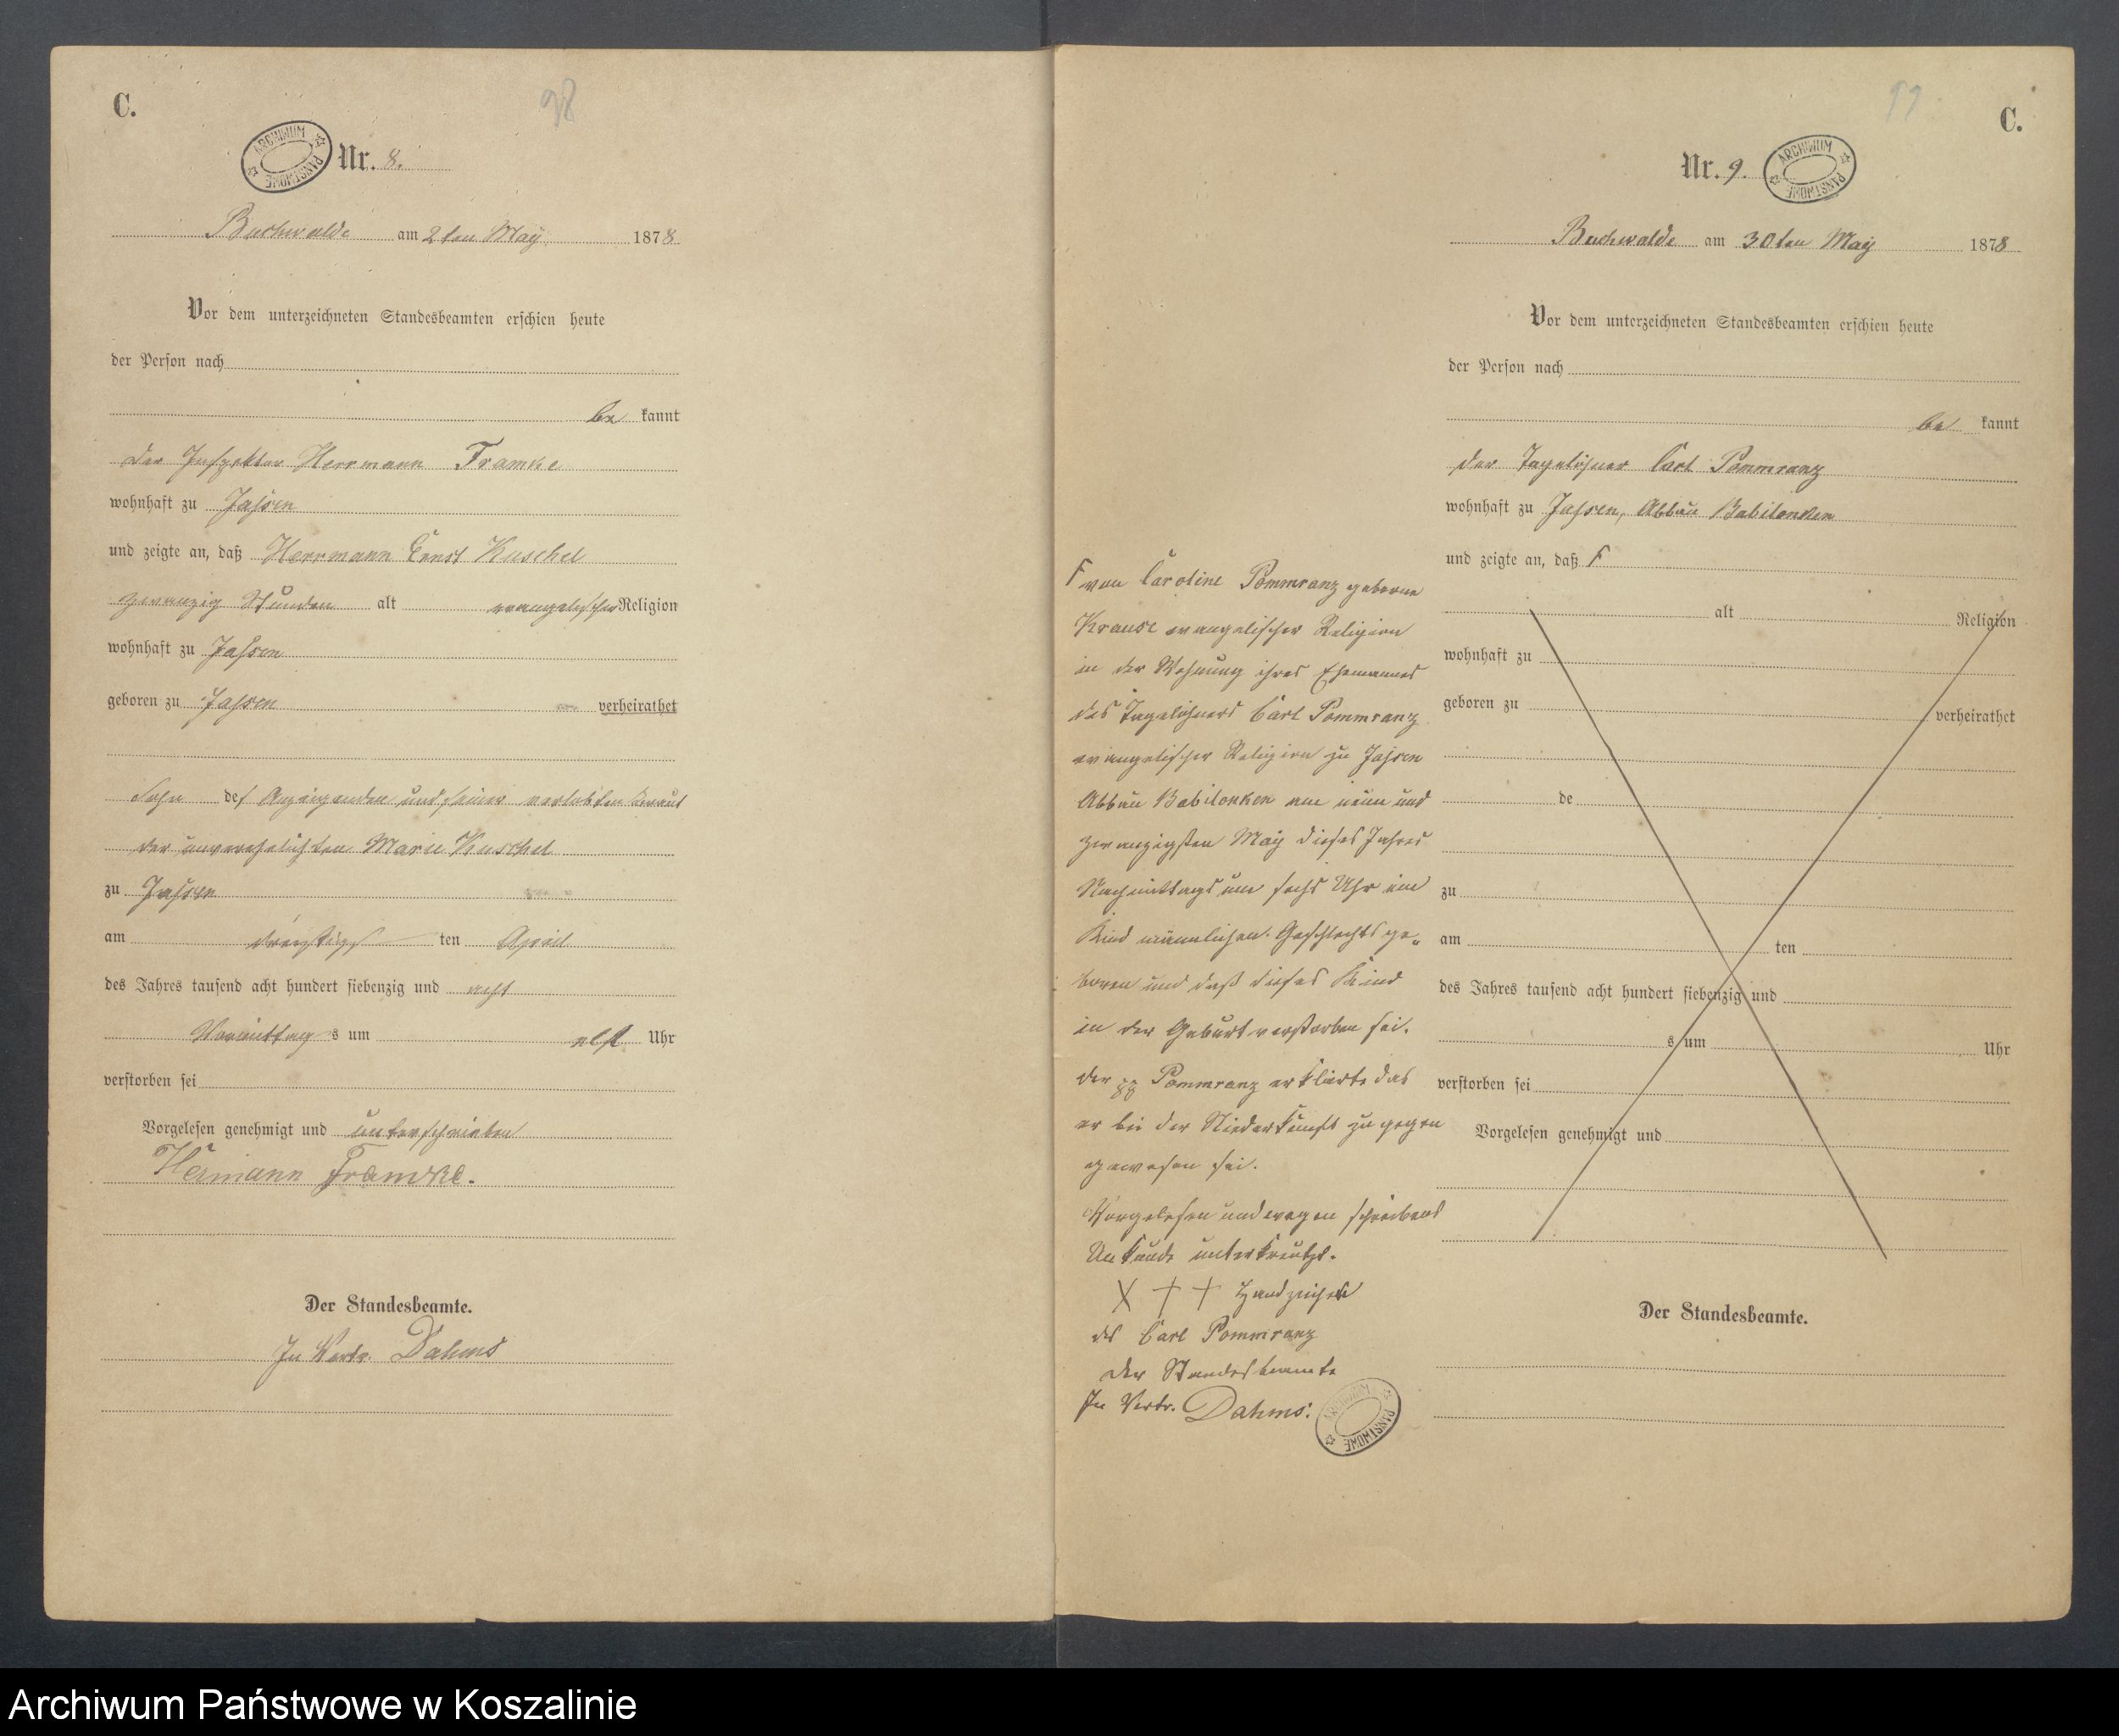 C.
98
ARCHIWUM PAŃSTWOWE
Nr. 8.
Buchwalde am 2ten May 1878
Vor dem unterzeichneten Standesbeamten erschien heute
der Person nach
be kannt
der Inspektor Herrmann Framke
wohnhaft zu Jassen
und zeigte an, daß Herrmann Ernst Kuschel
zwanzig Stunden alt evangelischer Religion
wohnhaft zu Jassen
geboren zu Jassen verheirathet
Sohn des Anzeigenden und seiner verlobten Braut
der unverehelichten Marie Kuschel
zu Jassen
am dreißigs ten April
des Jahres tausend acht hundert siebenzig und acht
Vormittag s um elf Uhr
verstorben sei
Vorgelesen genehmigt und unterschrieben
Hermann Framke.
Der Standesbeamte.
In Vertr. Dahms
C.
ARCHIWUM PAŃSTWOWE
Nr. 9.
Buchwalde am 30ten May 1878
Vor dem unterzeichneten Standesbeamten erschien heute
der Person nach
be kannt
der Tagelöhner Carl Pommranz
wohnhaft zu Jassen, Abbau Babilonken
und zeigte an, daß F
alt Religion
wohnhaft zu
geboren zu verheirathet
de
zu
am ten
des Jahres tausend acht hundert siebenzig und
s um Uhr
verstorben sei
Vorgelesen genehmigt und
Der Standesbeamte.
F von Caroline Pommranz geborne
Krause evangelischer Religion
in der Wohnung ihres Ehemannes
des Tagelöhners Carl Pommranz
evangelischer Religion zu Jassen
Abbau Babilonken am neun und
zwanzigsten May dieses Jahres
Nachmittags um sechs Uhr ein
Kind männlichen Geschlechts ge„
boren und daß dieses Kind
in der Geburt verstorben sei.
der Pommranz erklärte das
er bei der Niederkunft zugegen
gewesen sei.
Vorgelesen und wegen schreibens
Unkunde unterkreuzt.
X + + Handzeichen
des Carl Pommranz
der Standesbeamte
In Vertr. Dahms.
ARCHIWUM PAŃSTWOWE
Archiwum Państwowe w Koszalinie